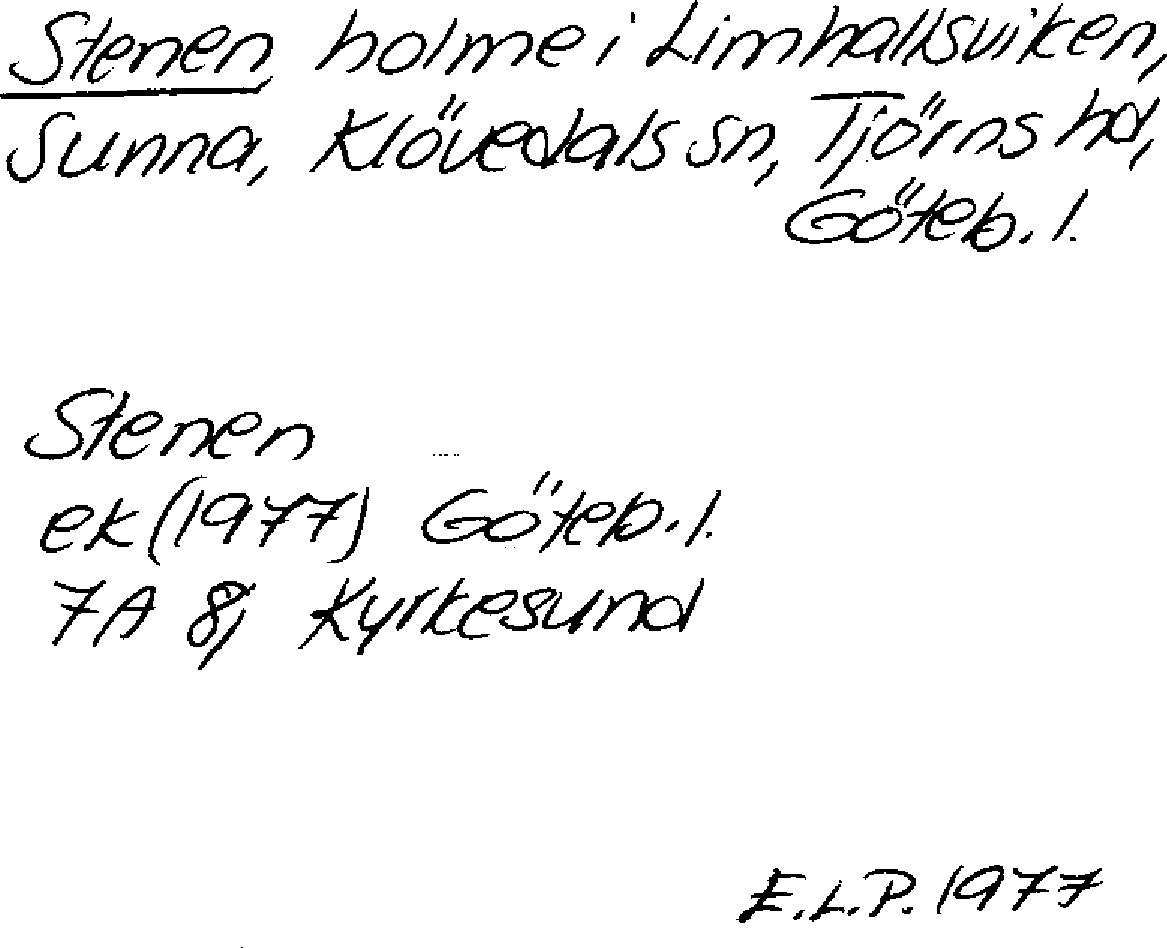 Stenen, holme i Limhallsviken,
Sunna, Klövedals sn, Tjörns hd,
Göteb. l.
Stenen
ek (1977) Göteb. l.
7A 8j Kyrkesund
E.L.P. 1977